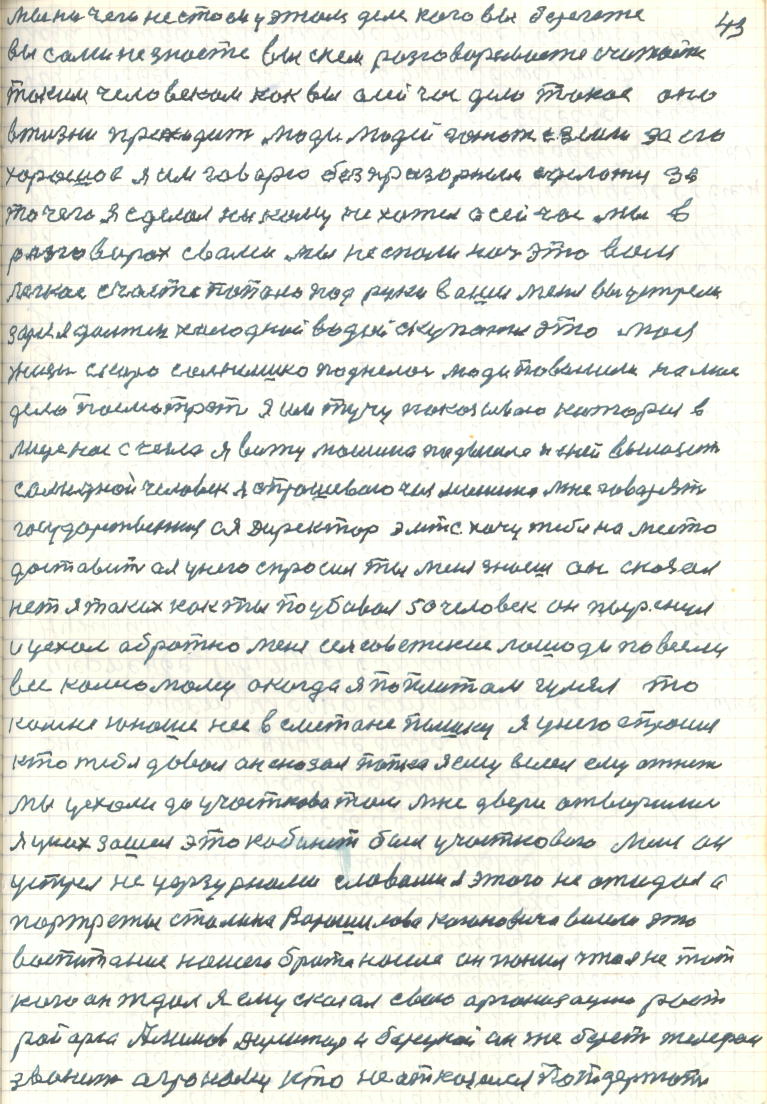 43
мы на чего не стоим у этом деле кого вы бережете
вы сами не знаете вы скем разговариваете считайте
таким человеком как вы а сей час дело такое оно
вжизни проходит люди людей за его
хорошое я им говарю без празорныя сделали за
то чего я сделал никому не хател а сей час мы в
разговорах свами мы не спали ноч это вам
легкое счасте попало под руки ваши меня выустрели
заря я должен халодной водой скупатся это моя
жизнь скоро солнышко поднелос люди на мое
дело посмотрят я им тучу показываю каторая в
я вижу машина подышла с ней вылазит
человек я спрашеваю чия машина мне говорят
государственная а я директор эмтс хачу тебя на место
доставит а я унего спросил ты меня знаеш он сказал
нет я таких как ты поубавал 50 человек он
и уехал абратно меня селсоветские лошади повезли
все камномому а когда я по плитам гулял то
камне юноша нес в сметане пышку я унего спросил
кто тебя давал он сказал папка я ему велел ему отнест
мы уехали до участкова там мне двери атварили
я уних зашел это кабинет был участкового меня он
устрел не цэрзурными словами я этого не ожидал а
портреты сталина Ворошилова кагановича висело это
воспитание нашего брата наше он понял что я не тот
кого он ждал я ему сказал свою арганизацию рост
рой арса Алшимов Димитар и берукой он же берет телефон
звонит агроному кто не атказался поддержать